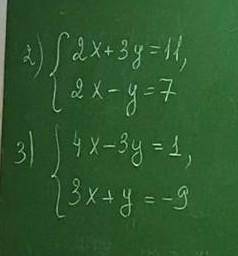 2) { 2x+3y=11,
2x-y=7
3) { 4x-3y=1,
3x+y=-9